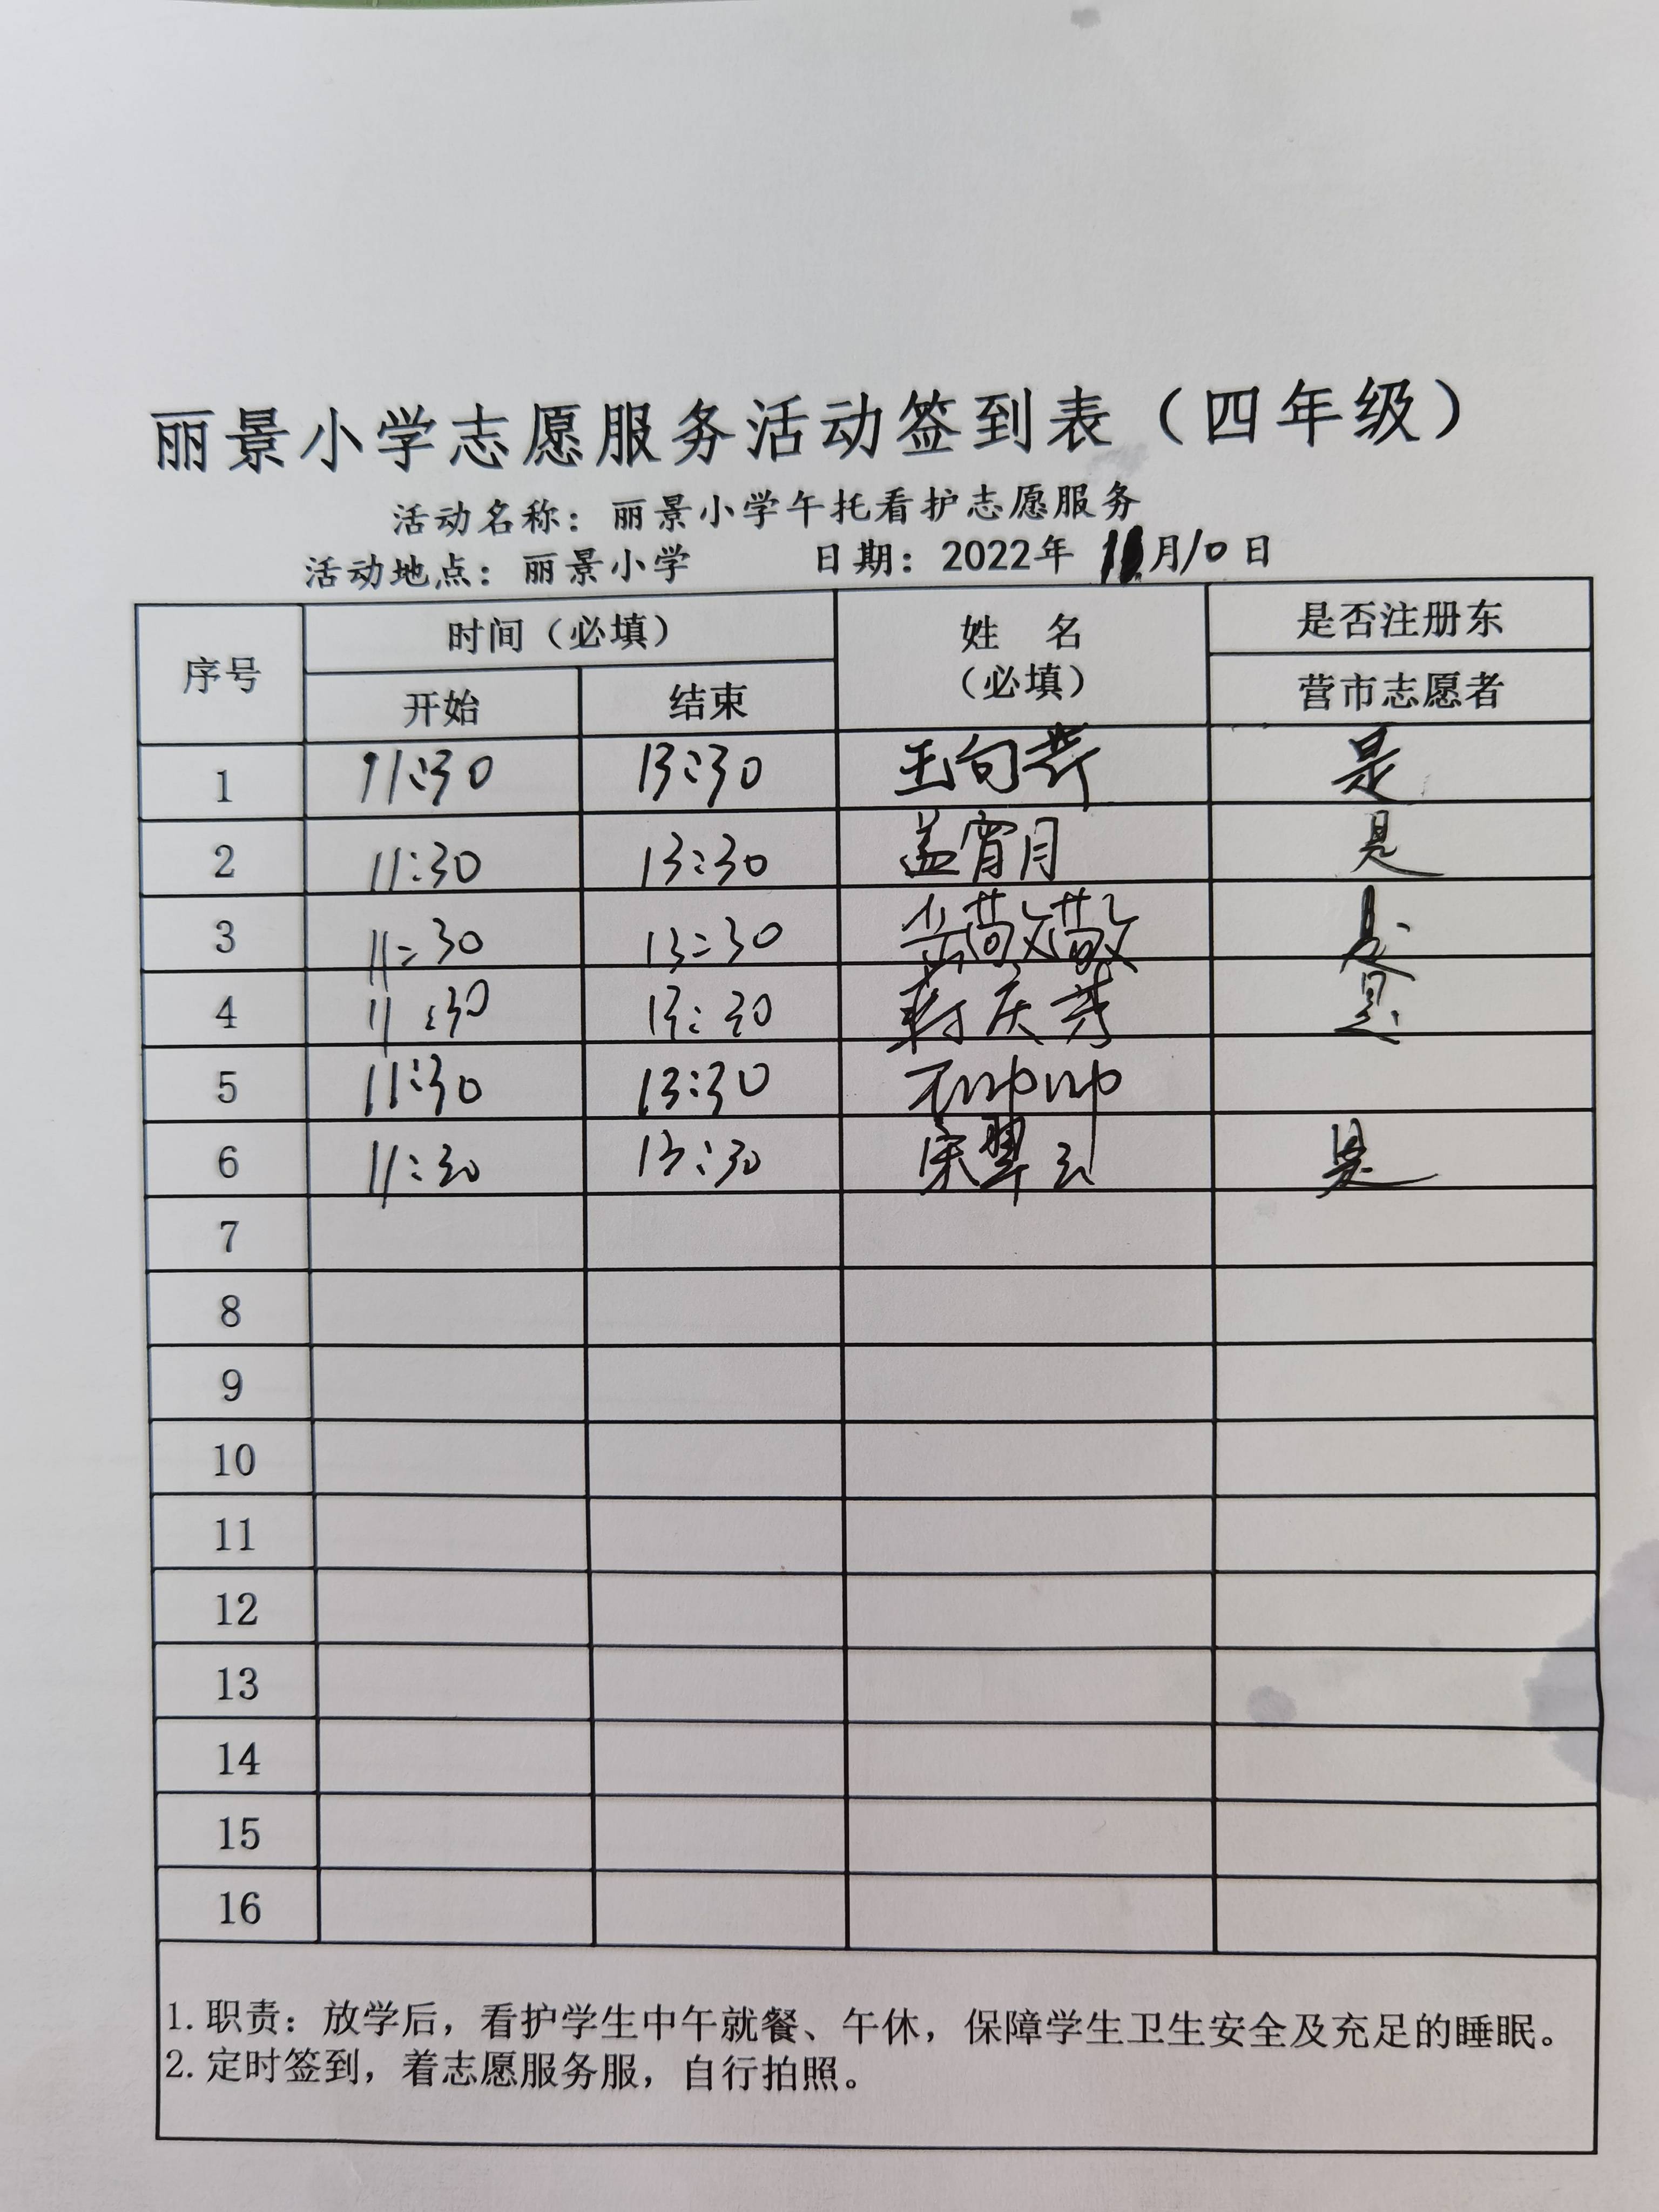 丽景小学志愿服务活动签到表（四年级）
活动名称：丽景小学午托看护志愿服务
活动地点：丽景小学 日期：2022年 11月10日
序号 时间（必填） 姓 名 （必填） 是否注册东
开始 结束 营市志愿者
1 11:30 13:30 王向 是
2 11:30 13:30 盖宵月 是
3 11:30 13:30 岳敬敬 是
4 11:30 13:30 庆芳 是
5 11:30 13:30 石帅帅
6 11:30 13:30 宋翠云 是
7
8
9
10
11
12
13
14
15
16
1.职责：放学后，看护学生中午就餐、午休，保障学生卫生安全及充足的睡眠。
2.定时签到，着志愿服务服，自行拍照。